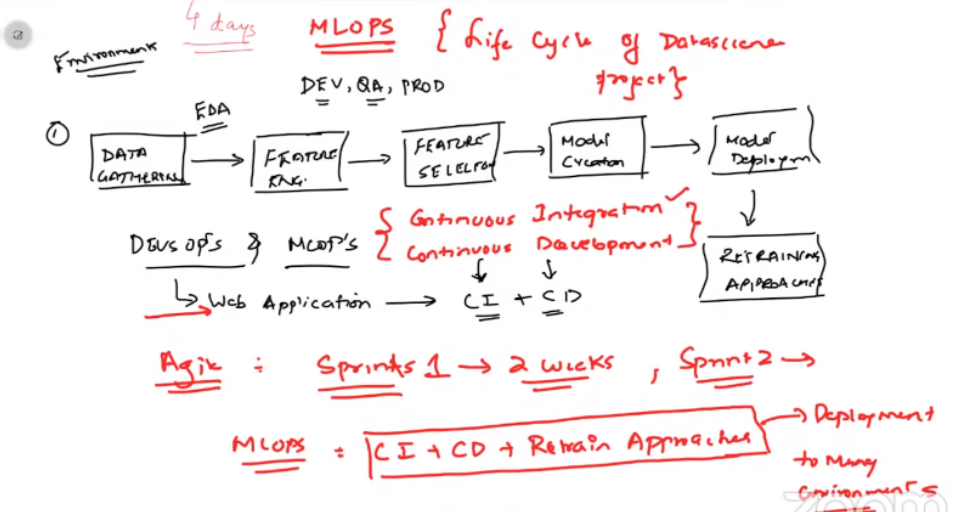 4 days
MLOPS { Life Cycle of Datascience
project}
Environments
DEV, QA, PROD
EDA
①
DATA
GATHERING
FEATURE
ENG.
FEATURE
SELECTION
Model
Creation
Model
Deploym
RETRAINING
APPROACHES
DEVSOP'S & MLOP'S { Continuous Integration ✓ }
Continuous Development
Web Application → CI + CD
Agile : Sprints 1 → 2 weeks , Sprint 2 →
MLOPS : CI + CD + Retrain Approaches
→ Deployment
to Many
environments
zoom